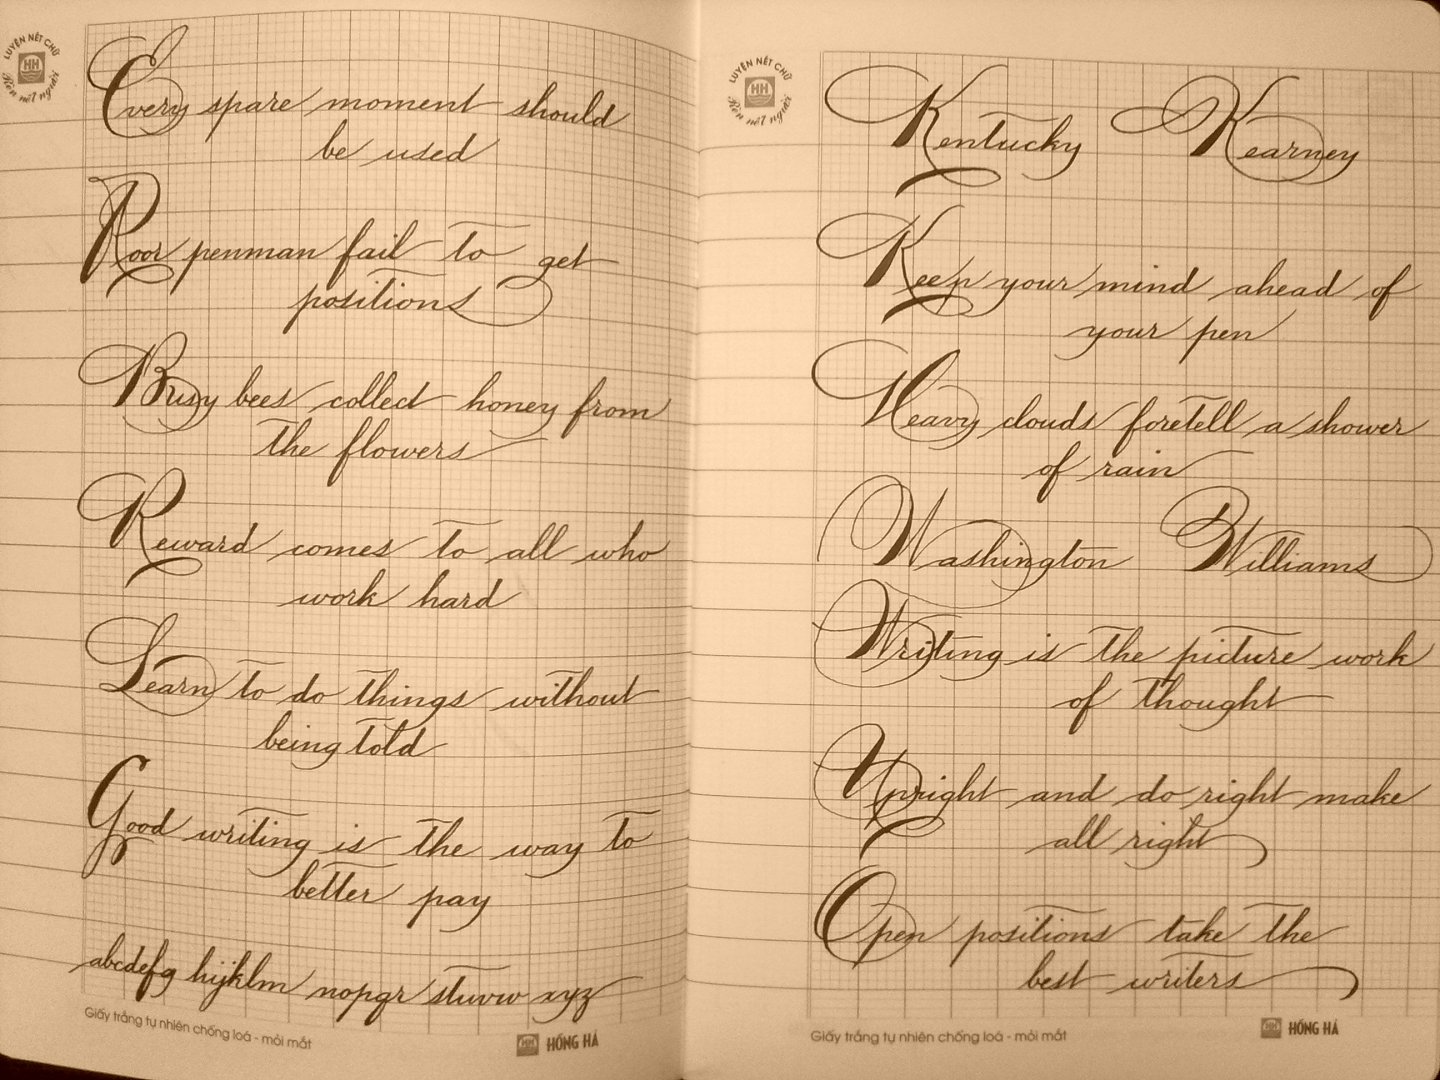 LUYỆN NÉT CHỮ
HH
Rèn nết người
Every spare moment should
be used
Poor penman fail to get
positions
Busy bees collect honey from
the flowers
Reward comes to all who
work hard
Learn to do things without
being told
Good writing is the way to
better pay
abcdefg hijklm nopqr stuvw xyz
Giấy trắng tự nhiên chống loá - mỏi mắt
HH HỒNG HÀ
LUYỆN NÉT CHỮ
HH
Rèn nết người
Kentucky Kearney
Keep your mind ahead of
your pen
Heavy clouds foretell a shower
of rain
Washington Williams
Writing is the picture work
of thought
Upright and do right make
all right
Open positions take the
best writers
Giấy trắng tự nhiên chống loá - mỏi mắt
HH HỒNG HÀ